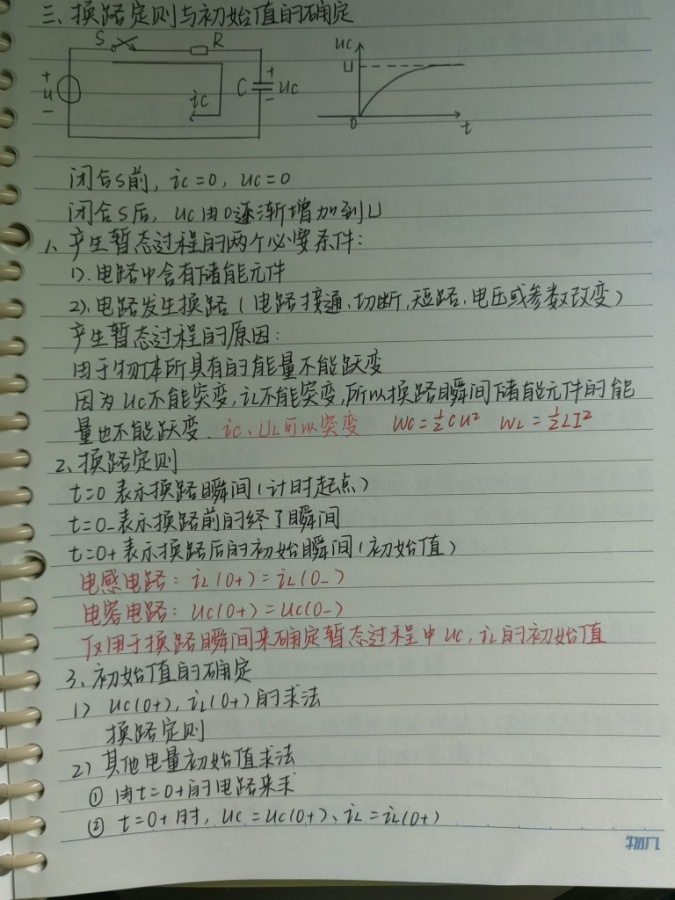 三、换路定则与初始值的确定
S R uc
U
+ u − ic C + − uc
0 t
闭合S前, ic=0, uc=0
闭合S后, uc由0逐渐增加到U
1、产生暂态过程的两个必要条件:
1).电路中含有储能元件
2).电路发生换路(电路接通、切断,短路、电压或参数改变)
产生暂态过程的原因:
由于物体所具有的能量不能跃变
因为uc不能突变,iL不能突变,所以换路瞬间储能元件的能
量也不能跃变、ic、UL可以突变 Wc=½Cu² WL=½LI²
2、换路定则
t=0 表示换路瞬间(计时起点)
t=0-表示换路前的终了瞬间
t=0+表示换路后的初始瞬间(初始值)
电感电路: iL(0+)=iL(0-)
电容电路: uc(0+)=uc(0-)
仅用于换路瞬间来确定暂态过程中uc、iL的初始值
3、初始值的确定
1) uc(0+), iL(0+)的求法
换路定则
2) 其他电量初始值求法
① 由t=0+的电路来求
② t=0+时, uc=uc(0+)、iL=iL(0+)
物几